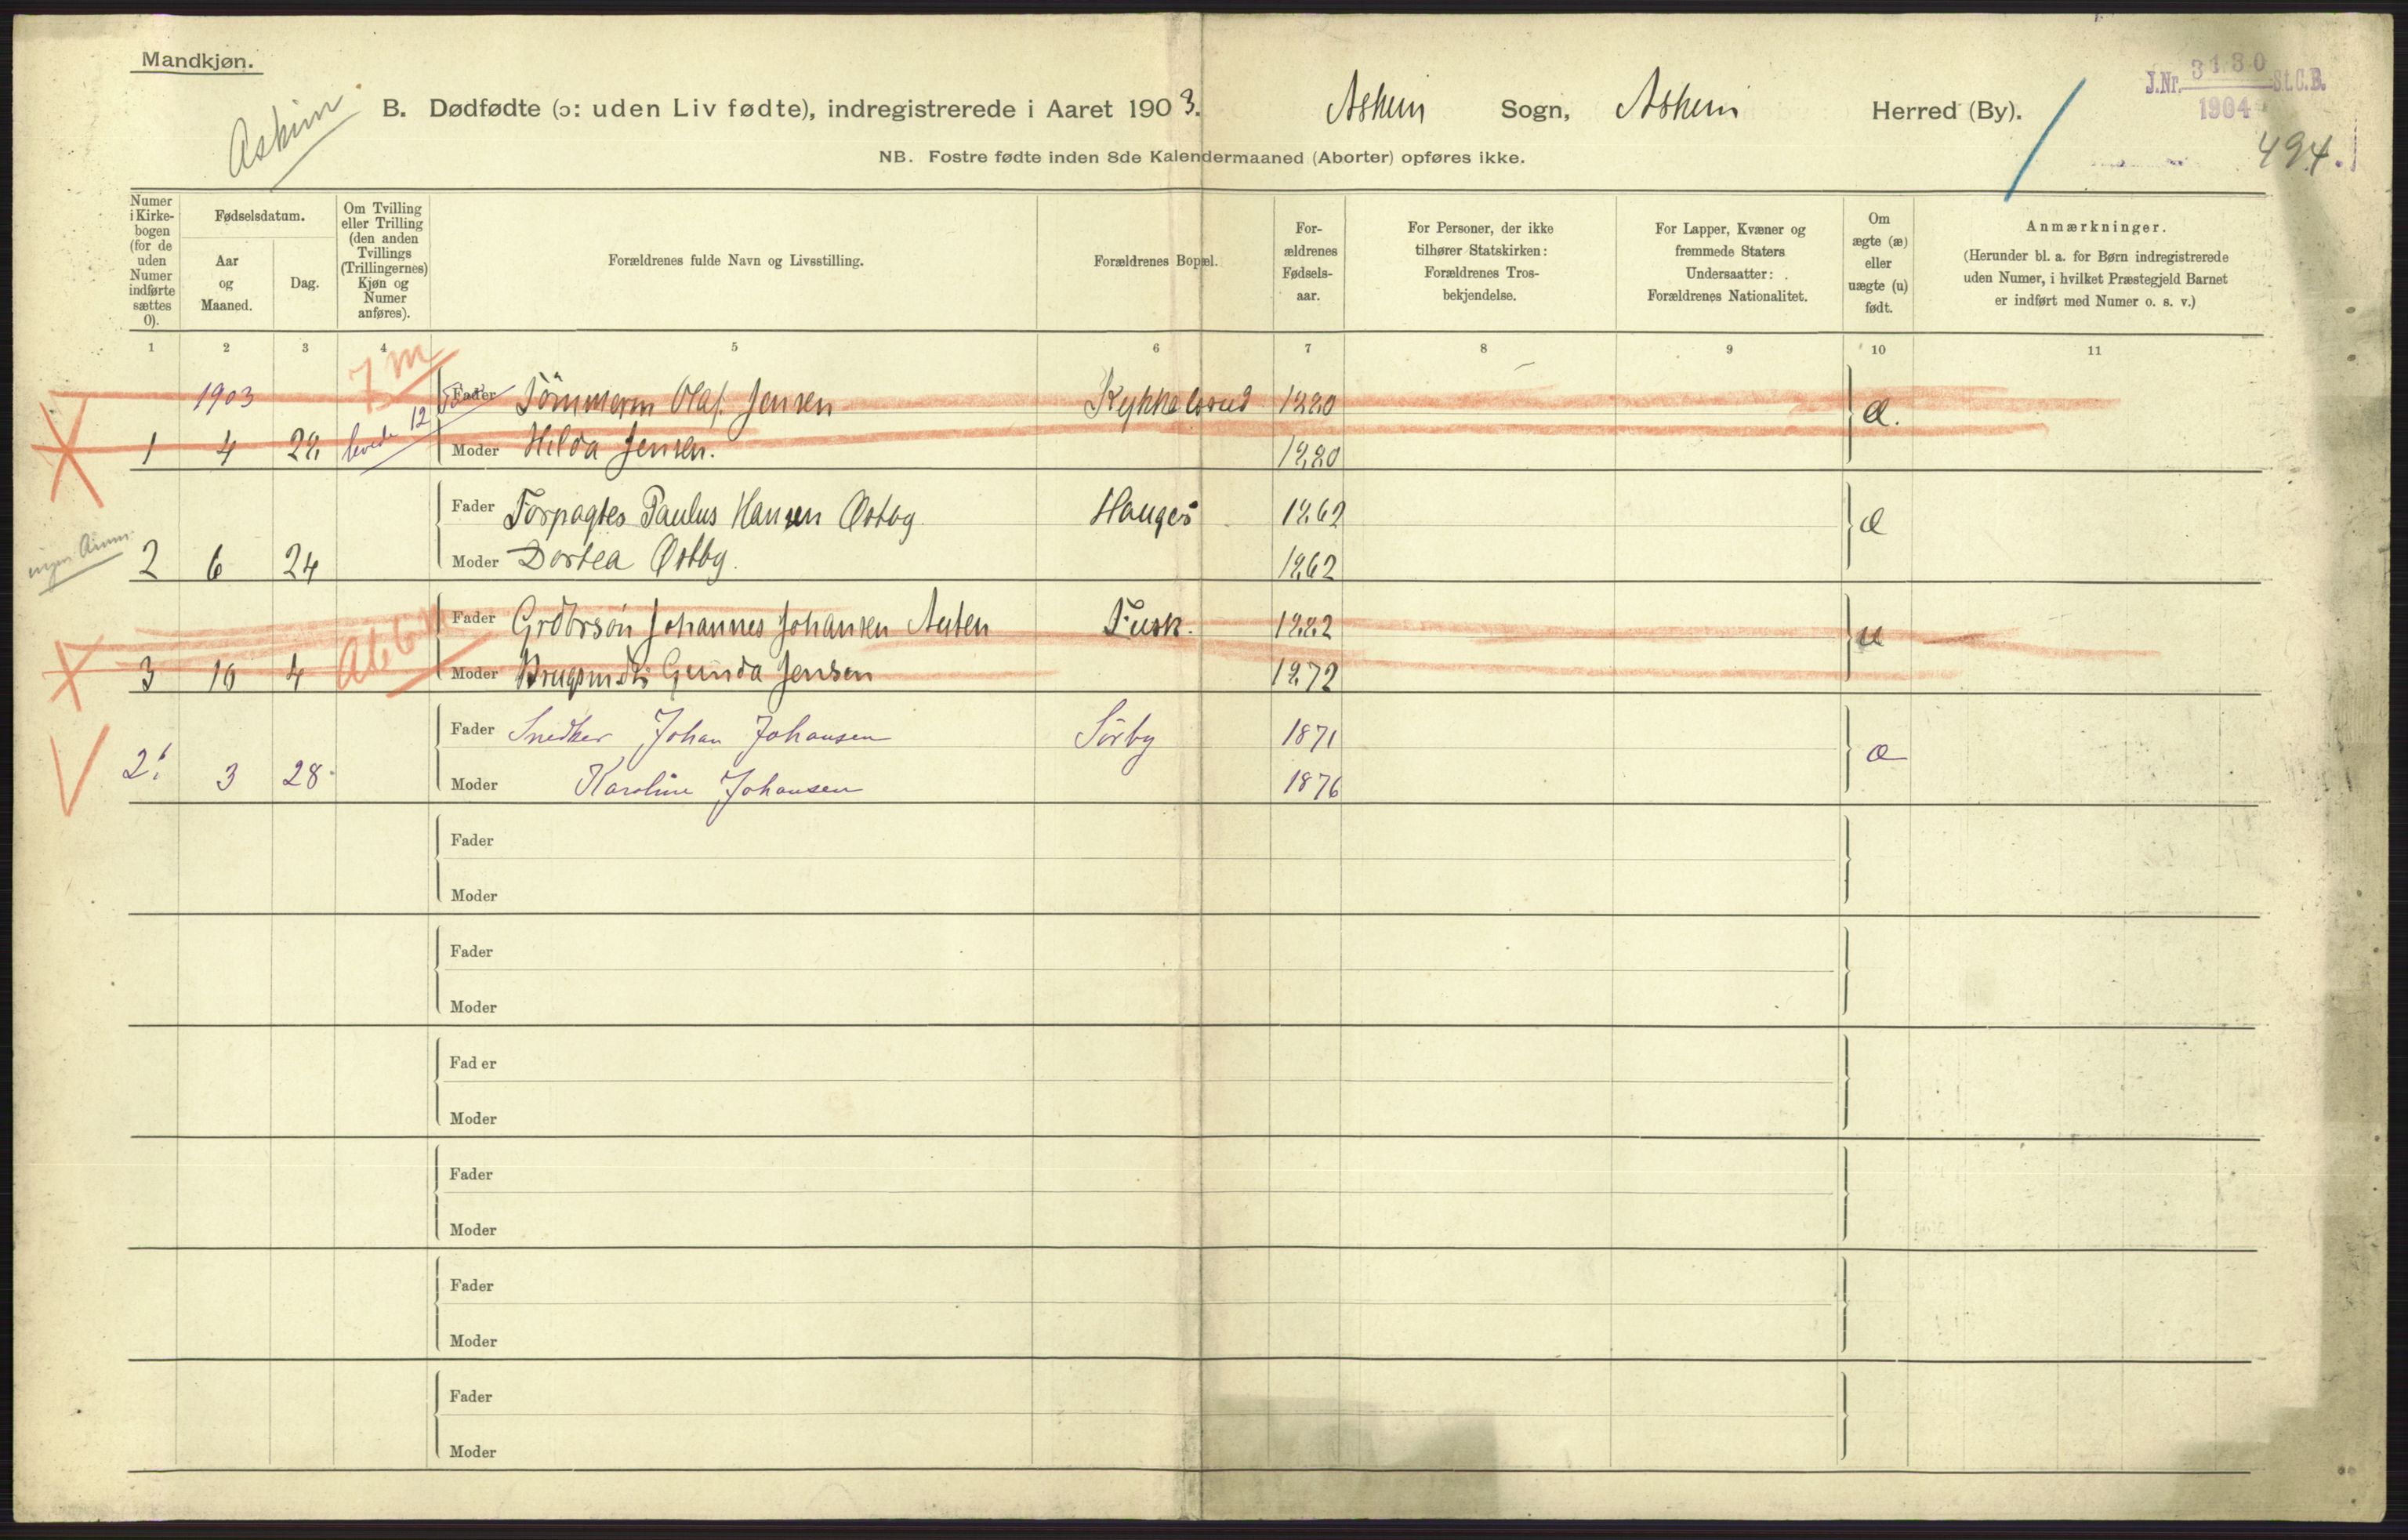 Mandkjøn.
Askim
B. Dødfødte (ɔ: uden Liv fødte), indregistrerede i Aaret 1903. Askim Sogn, Askim Herred (By).
J.Nr. 3180 St.C.B.
1904
494.
NB. Fostre fødte inden 8de Kalendermaaned (Aborter) opføres ikke.
Numer i Kirkebogen (for de uden Numer indførte sættes 0).
Fødselsdatum.
Aar og Maaned.
Dag.
Om Tvilling eller Trilling (den anden Tvillings (Trillingernes) Kjøn og Numer anføres).
Forældrenes fulde Navn og Livsstilling.
Forældrenes Bopæl.
Forældrenes Fødselsaar.
For Personer, der ikke tilhører Statskirken: Forældrenes Trosbekjendelse.
For Lapper, Kvæner og fremmede Staters Undersaatter: Forældrenes Nationalitet.
Om ægte (æ) eller uægte (u) født.
Anmærkninger.
(Herunder bl. a. for Børn indregistrerede uden Numer, i hvilket Præstegjeld Barnet er indført med Numer o. s. v.)
1 2 3 4 5 6 7 8 9 10 11
7 m
1903 Fader Tömmerm Olaf Jensen Kykkelsrud 1880 æ.
1 4 28 levede 12 Moder Hilda Jensen. 1880
Fader Forpagter Paulus Hansen Østby Hauger 1862 æ
2 6 24 Moder Dortea Østby. 1862
Fader Grdbrsön Johannes Johansen Fusk. 1882 u
3 10 4 Moder Gunda Jensen 1872
Fader Snedker Johan Johansen Sörby 1871 æ
3 28 Moder Karoline Johansen 1876
Fader
Moder
Fader
Moder
Fader
Moder
Fader
Moder
Fader
Moder
Fader
Moder